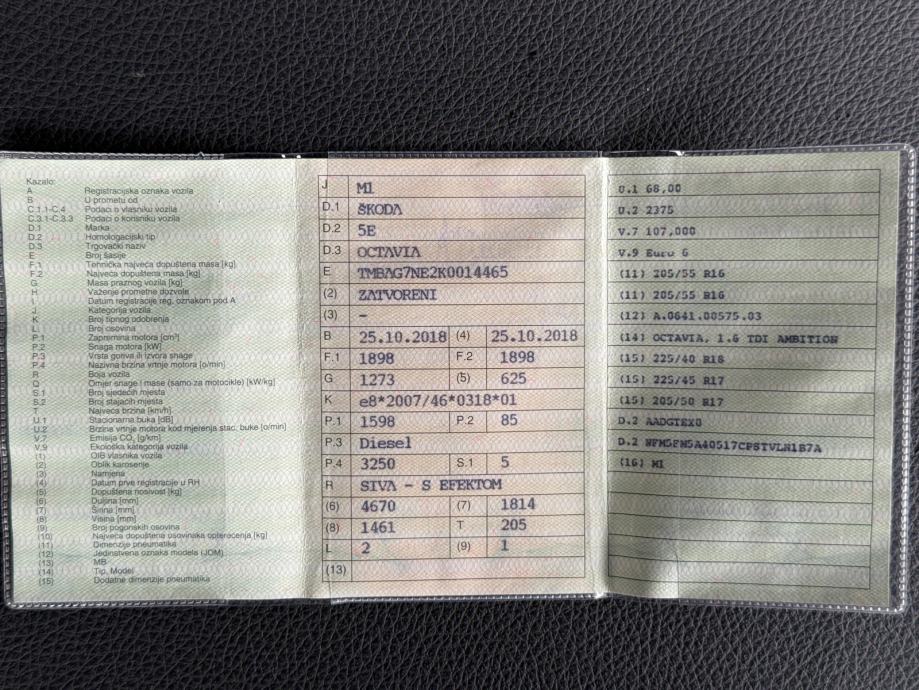 Kazalo:
A Registracijska oznaka vozila
B U prometu od
C.1.1-C.4 Podaci o vlasniku vozila
C.3.1-C.3.3 Podaci o korisniku vozila
D.1 Marka
D.2 Homologacijski tip
D.3 Trgovački naziv
E Broj šasije
F.1 Tehnička najveća dopuštena masa [kg]
F.2 Najveća dopuštena masa [kg]
G Masa praznog vozila [kg]
H Važenje prometne dozvole
I Datum registracije reg. oznakom pod A
J Kategorija vozila
K Broj tipnog odobrenja
L Broj osovina
P.1 Zapremina motora [cm³]
P.2 Snaga motora [kW]
P.3 Vrsta goriva ili izvora snage
P.4 Nazivna brzina vrtnje motora [o/min]
R Boja vozila
Q Omjer snage i mase (samo za motocikle) [kW/kg]
S.1 Broj sjedećih mjesta
S.2 Broj stajaćih mjesta
T Najveća brzina [km/h]
U.1 Stacionarna buka [dB]
U.2 Brzina vrtnje motora kod mjerenja stac. buke [o/min]
V.7 Emisija CO₂ [g/km]
V.9 Ekološka kategorija vozila
(1) OIB vlasnika vozila
(2) Oblik karoserije
(3) Namjena
(4) Datum prve registracije u RH
(5) Dopuštena nosivost [kg]
(6) Duljina [mm]
(7) Širina [mm]
(8) Visina [mm]
(9) Broj pogonskih osovina
(10) Najveća dopuštena osovinska opterećenja [kg]
(11) Dimenzije pneumatika
(12) Jedinstvena oznaka modela (JOM)
(13) MB
(14) Tip, Model
(15) Dodatne dimenzije pneumatika
J M1
D.1 ŠKODA
D.2 5E
D.3 OCTAVIA
E TMBAG7NE2K0014465
(2) ZATVORENI
(3) –
B 25.10.2018 (4) 25.10.2018
F.1 1898 F.2 1898
G 1273 (5) 625
K e8*2007/46*0318*01
P.1 1598 P.2 85
P.3 Diesel
P.4 3250 S.1 5
R SIVA - S EFEKTOM
(6) 4670 (7) 1814
(8) 1461 T 205
L 2 (9) 1
(13)
U.1 68,00
U.2 2375
V.7 107,000
V.9 Euro 6
(11) 205/55 R16
(11) 205/55 R16
(12) A.0641.00575.03
(14) OCTAVIA, 1.6 TDI AMBITION
(15) 225/40 R18
(15) 225/45 R17
(15) 205/50 R17
D.2 AADGTEX0
D.2 NFM5FM5A40517CPSTVLN1B7A
(16) M1